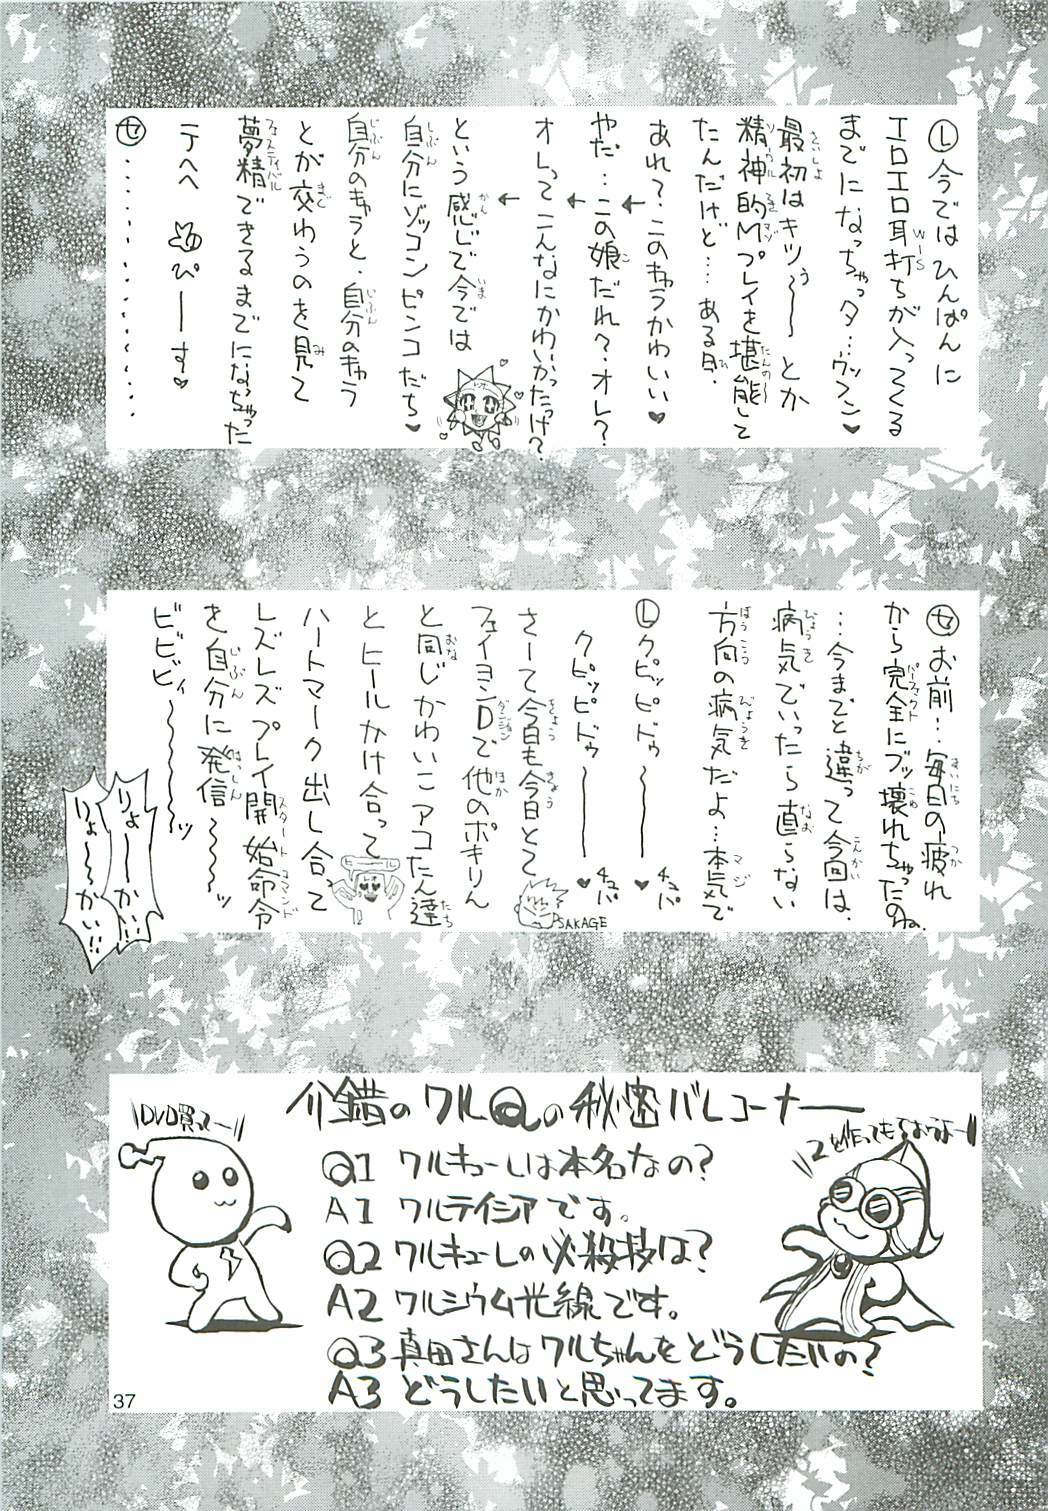 Ⓛ今ではひんぱんに
エロエロ耳打ちが入ってくる
までになっちゃっタ…ウッフン♥
最初はキツ〜〜〜とか
精神的Mプレイを堪能して
たんだけど…ある日、
あれ?このキャラかわいい♥
やだ…この娘だれ?オレ?
オレってこんなにかわいかったっけ?
という感じで今では
自分にゾッコンピンコだち♥
自分のキャラと、自分のキャラ
とが交わうのを見て
夢精できるまでになっちゃった
テヘヘ ぴーす♥
㋝・・・・・・・・・・・・
㋝お前…毎日の疲れ
から完全にブッ壊れちゃったのね。
…今までと違って今回は、
病気でいったら直らない
方向の病気だよ…本気で
Ⓛクピッピドゥ〜〜〜♥チュパ
クピッピドゥ〜〜〜♥チュパ
さーて今日も今日とて
フェイヨンDで他のポキりん
と同じかわいこアコたん達
とヒールかけ合って
ハートマーク出し合って
レズレズプレイ開始命令
を自分に発信〜〜〜ッ
ビビビィ〜〜〜〜ッ
ヒール
PSAKAGE
りょ〜〜かい!!
りょ〜〜かい!!
介錯のワルQの秘密バレコーナー
\\DVD買って〜//
\\2も作ってもらおうよー//
Q1 ワルキューレは本名なの?
A1 ワルテイシアです。
Q2 ワルキューレの必殺技は?
A2 ワルシウム光線です。
Q3 真田さんはワルちゃんをどうしたいの?
A3 どうしたいと思ってます。
37